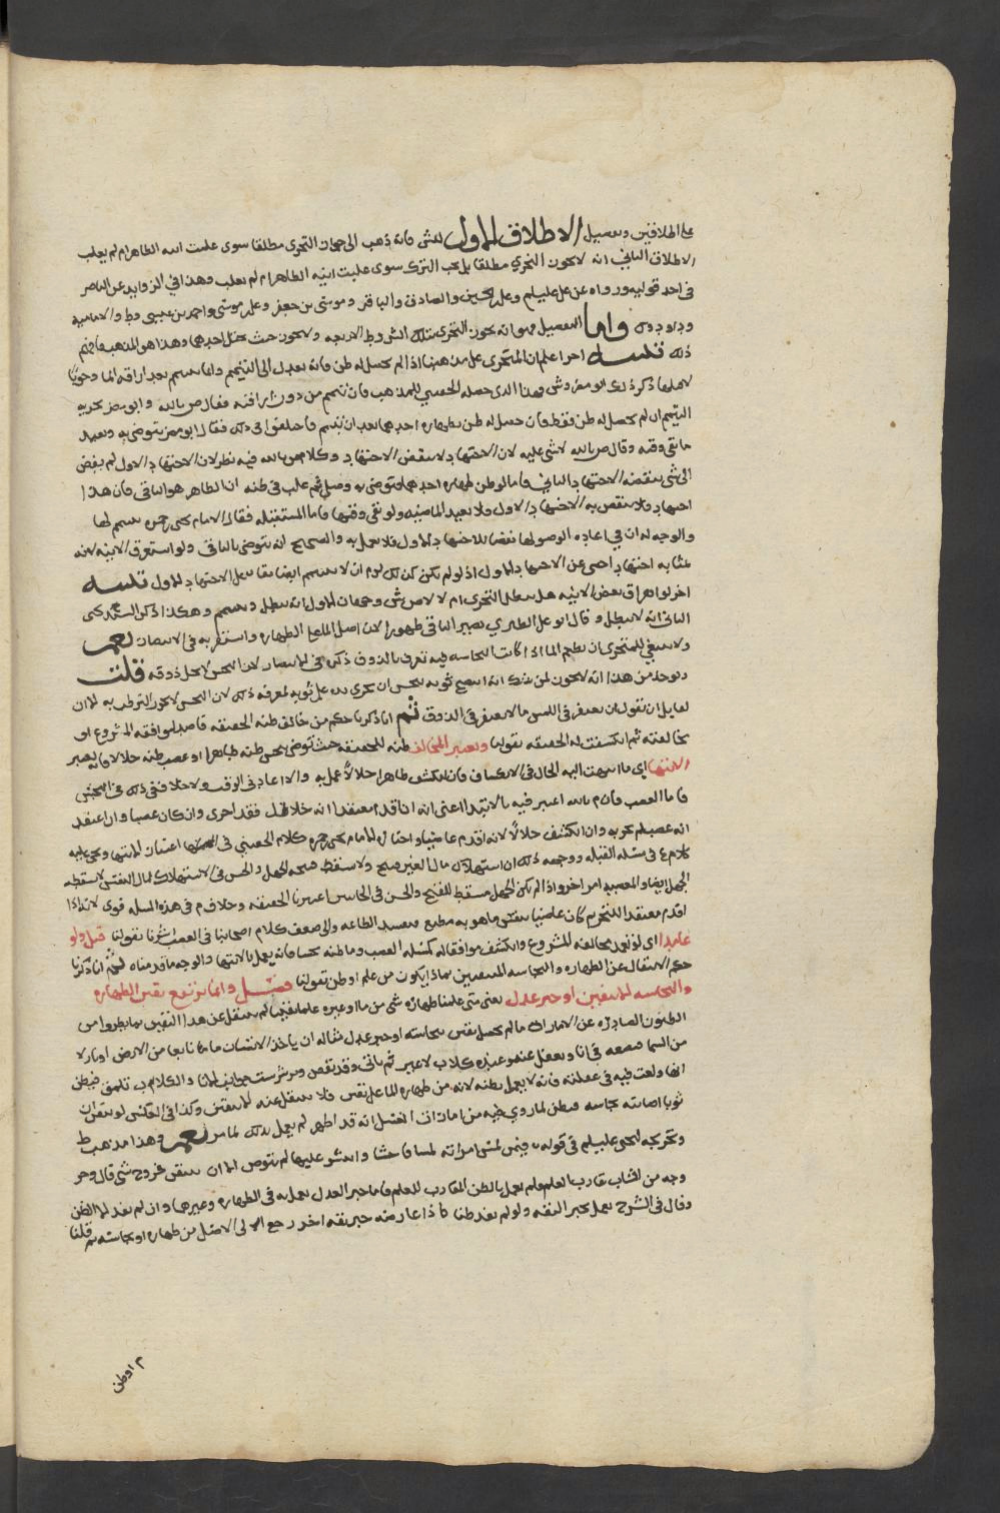 على اطلاقين وتفصيل الاطلاق الاول لش فانه ذهب الى جواز التحري مطلقا سوى غلبت انيه الطاهر ام لم يغلب
الاطلاق الثاني انه لا يجوز التحري مطلقا بل يجب الترك سوى غلبت انيه الطاهر ام لم يغلب وهذا في الزوايد عن الناصر
في احد قوليه ورواه عن علي عليلم وعلي بن الحسين والصادق والباقر وموسى بن جعفر وعلي بن موسى واحمد بن عيسى وط والاماميه
وداود وك واما التفصيل فهو انه يجوز التحري بتلك الشروط الاربعه ولا يجوز حيث يختل احدها وهذا هو المذهب
ذلك تنبيه اخر اعلم ان المتحري على مذهبنا اذا لم يحصل له ظن فانه يعدل الى التيمم وانما يتيمم بعد اراقه الما وجوبا
ذكر ذلك ابو مضر وش وهذا الذي حصله الحقيني للمذهب فان تيمم من دون اراقته فقال ص بالله وابو مضر يجزيه
التيمم ان لم يحصل له ظن فقط فان حصل له ظن بطهاره احدهما بعد ان تيمم فاختلفوا في ذلك فقال ابو مضر يتوضى به ويعيد
ما بقي وقته وقال ص بالله لا شي عليه لان الاجتهاد لا ينقض الاجتهاد وكلام ص بالله فيه نظر لان الاجتهاد الاول لم يفض
الى شي ينقضه الاجتهاد الثاني فاما لو ظن طهاره احدهما وتوضى به وصلى ثم غلب في ظنه ان الطاهر هو الباقي فان هذا
اجتهاد ولا ينقض به الاجتهاد الاول ولا يعيد الماضيه ولو بقي وقتها فاما المستقبله فقال الامام يحيى بن حمزه يتيمم لها
والوجه له ان في اعاده الوضو لها نقضا للاجتهاد الاول فلا يعمل به والصحيح انه يتوضى بالباقي ولو استغرق الانيه لانه
بمثابه اجتهاد اخص عن الاجتهاد الاول اذ لو لم يكن كذلك لزم ان لا يتيمم ايضا بقا على الاجتهاد الاول تنبيه
اخر لو اهراق بعض الانيه هل يبطل التحري ام لا لاص ش وجهان الاول انه يبطل ويتيمم وهكذا ذكر السيد يحيى
الثاني انه لا يبطل وقال ابو علي الطبري يصير الباقي طهورا لان اصل الما على الطهاره واستقر به في الانتصار نعم
ولا ينبغي للمتحري ان يطعم الما اذا كانت النجاسه فيه تعرف بالذوق ذكره في الانتصار لان النجس لا يحل ذوقه قلت
ويوخذ من هذا انه لا يجوز لمن شك انه اصبح ثوبه نجس ان يجري يده على ثوبه لمعرفه ذلك لان النجس لا يجوز الترطب به الا ان
لقايل ان يقول ان يعتفر في اللمس ما لا يعتفر في الذوق ثم انا ذكرنا حكم من خالف ظنه الحقيقه قاصدا موافقه المشروع او
مخالفته ثم انكشفت له الحقيقه بقولنا ويعتبر المخالف ظنه للحقيقه حيث توضى بنجس ظنه طاهرا او غصب ظنه حلالا فانه يعتبر
الانتها اي ما انتهت اليه الحال في الانكشاف فان انكشف طاهرا حلالا عمل به والا اعاد في الوقت ولا خلاف في ذلك في النجس
فاما الغصب فان م بالله اعتبر فيه بالابتدا اعني انه ان اقدم معتقدا انه حلال فقد اجزى وان كان غصبا وان اعتقد
انه غصب لم يجزيه وان انكشف حلالا لانه اقدم عاصيا واختار الامام يحيى بن حمزه كلام الحقيني في اعتبار الانتها ونحى عليه
كلام ع في مسئله القبله ووجهه ذلك ان استهلاك مال الغير قبيح ولا يسقط قبحه الجهل والحسن في الاستهلاك لمال النفس لا يسقطه
الجهل ايضا والمعصيه امر اخر واذا لم يكن الجهل مسقط للقبح والحسن في الحالين اعتبرنا الحقيقه وخلاف م في هذه المسله قوى لانه اذا
اقدم معتقدا للتحريم كان عاصيا بنفس ما هو به مطيع فتفسد الطاعه والى ضعف كلام اصحابنا في الغصب اشرنا بقولنا قيل ولو
عامدا اي لو تعمد مخالفه المشروع وانكشف موافقا له كمسله الغصب وما ظنه نجسا فانه يعمل بالانتها والوجه ما قدمناه ثم انا ذكرنا
حكم الانتقال عن الطهاره والنجاسه المتيقنين بماذا يكون من علم او ظن بقولنا فصل وانما يرتفع يقين الطهاره
والنجاسه لمتيقين او خبر عدل يعني متى علمنا طهاره شي من ما او غيره علما يقينا لم ننتقل عن هذا اليقين بما يطروا من
الظنون الصادره عن الامارات ما لم يحصل يقين نجاسته او خبر عدل مثاله ان ياخذ الانسان ما نابعا من الارض او نازلا
من السما فيضعه في انا ويغفل عنه وعنده كلاب لا غير ثم ياتي وقد نقص
الفا ولغت فيه في غفلته فانه لا يعمل بظنه لانه من طهاره الما على يقين فلا ينتقل عنه الا بيقين وكذا في العكس لو تيقن ان
ثوبا اصابته نجاسه فيظن لما روي فيه من امارات الغسل انه قد اطهر لم يعمل بذلك لما مر نعم وهذا مذهب ط
وتخريجه ليحيى عليلم في قوله فيمن لمس امراته لمسا فاحشا وانتشر عليها لم يتوض الا ان تيقن خروج شي قال وخر
وجه من الشباب تقارب العلم ولم يعمل بالظن المقارب للعلم فاما خبر العدل يعمل به في الطهاره وغيرها وان لم يفد الا الظن
وقال في الشرح يعمل بخبر الثقه ولو لم يفد ظنا فاذا عارضه خبر ثقه اخر رجع الى الاصل من طهاره او نجاسه ثم قلنا
م او ظن